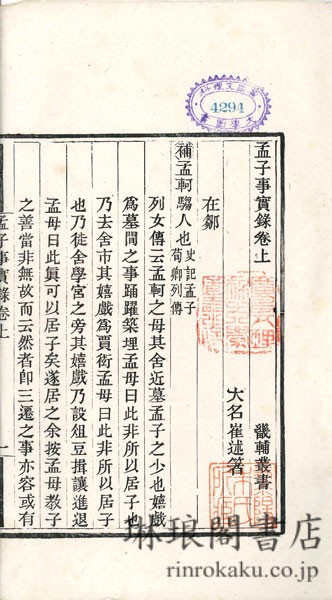 孟子事實錄卷上
畿輔叢書
大名崔述著
在鄒
補孟軻騶人也史記孟子荀卿列傳
列女傳云孟軻之母其舍近墓孟子之少也嬉戲
為墓間之事踊躍築埋孟母曰此非所以居子也
乃去舍市其嬉戲為賈衒孟母曰此非所以居子
也乃徙舍學宮之旁其嬉戲乃設俎豆揖讓進退
孟母曰此真可以居子矣遂居之余按孟母教子
之善當非無故而云然者即三遷之事亦容或有
孟子事實錄卷上
一
4294
琳琅閣書店
rinrokaku.co.jp